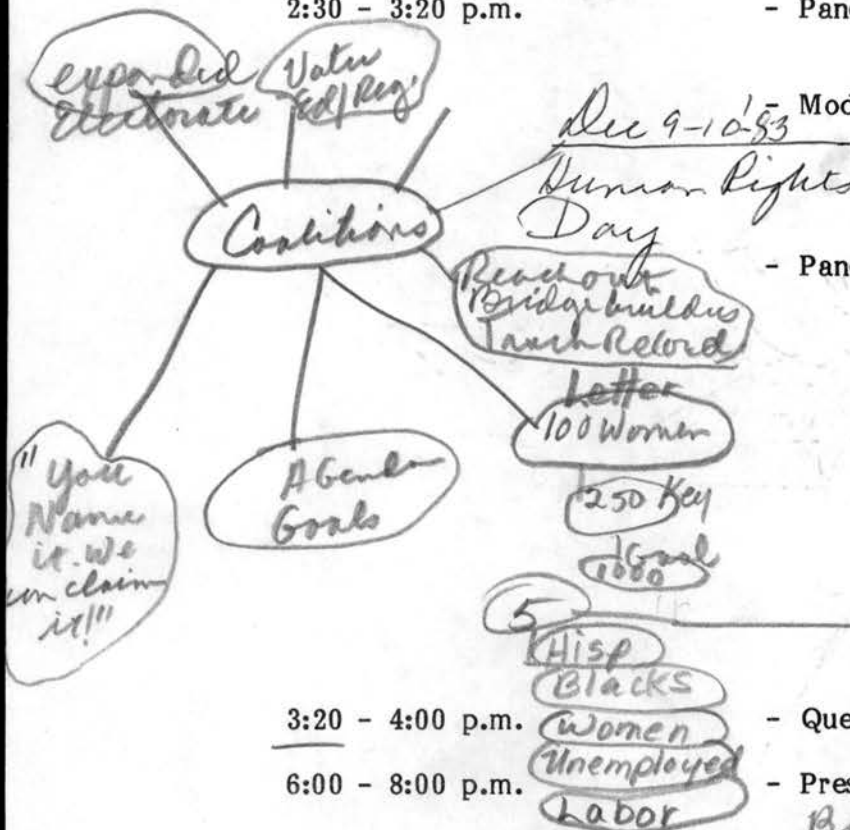 2:30 - 3:20 p.m.
- Pan
expanded
Electorate
Voter
Ed/Reg.
- Mod
Dec 9-10-'83
Human Rights
Day
Coalitions
- Pan
Reachout
Bridgebuilders
Track Record
Letter
100 Women
250 Key
Goal
1000
"You
Name
it. We
can claim
it!"
Agenda
Goals
5
Hisp
Blacks
3:20 - 4:00 p.m.
Women
- Que
Unemployed
6:00 - 8:00 p.m.
- Pres
Labor